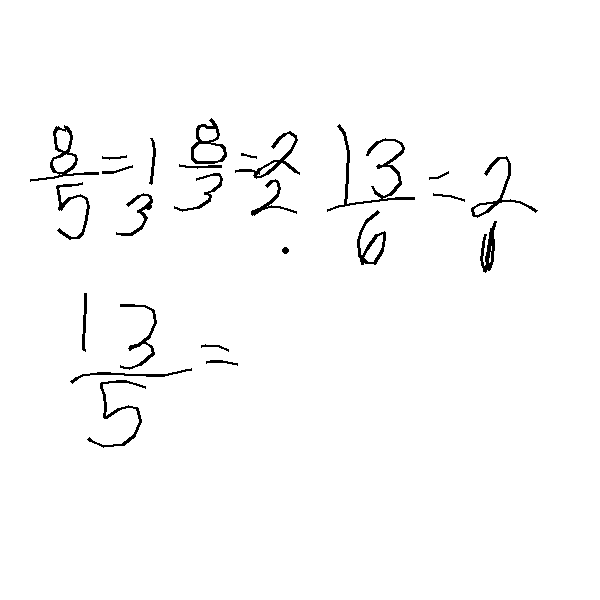 8/5 = 1 3 8/3 = 2 2 13/6 = 2 1
13/5 =